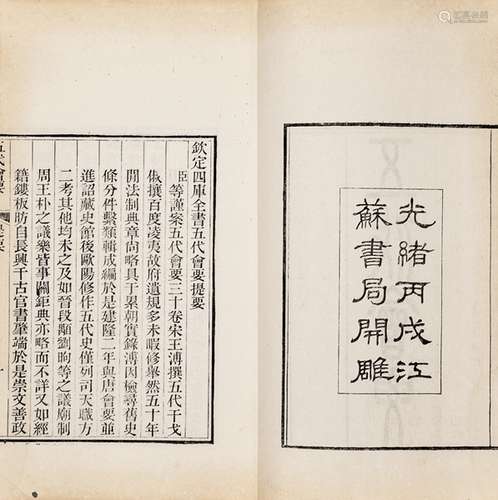 光緒丙戌江
蘇書局開雕
欽定四庫全書五代會要提要
臣等謹案五代會要三十卷宋王溥撰五代干戈
俶擾百度凌夷故府遺規多未暇修舉然五十年
閒法制典章尚略具于累朝實錄溥因檢尋舊史
條分件繫類輯成編於是建隆二年與唐會要並
進詔藏史館後歐陽修作五代史僅列司天職方
二考其他均未之及如晉段顒劉昫等之議廟制
周王朴之議樂皆事關鉅典亦略而不詳又如經
籍鏤板昉自長興千古官書肇端於是崇文善政